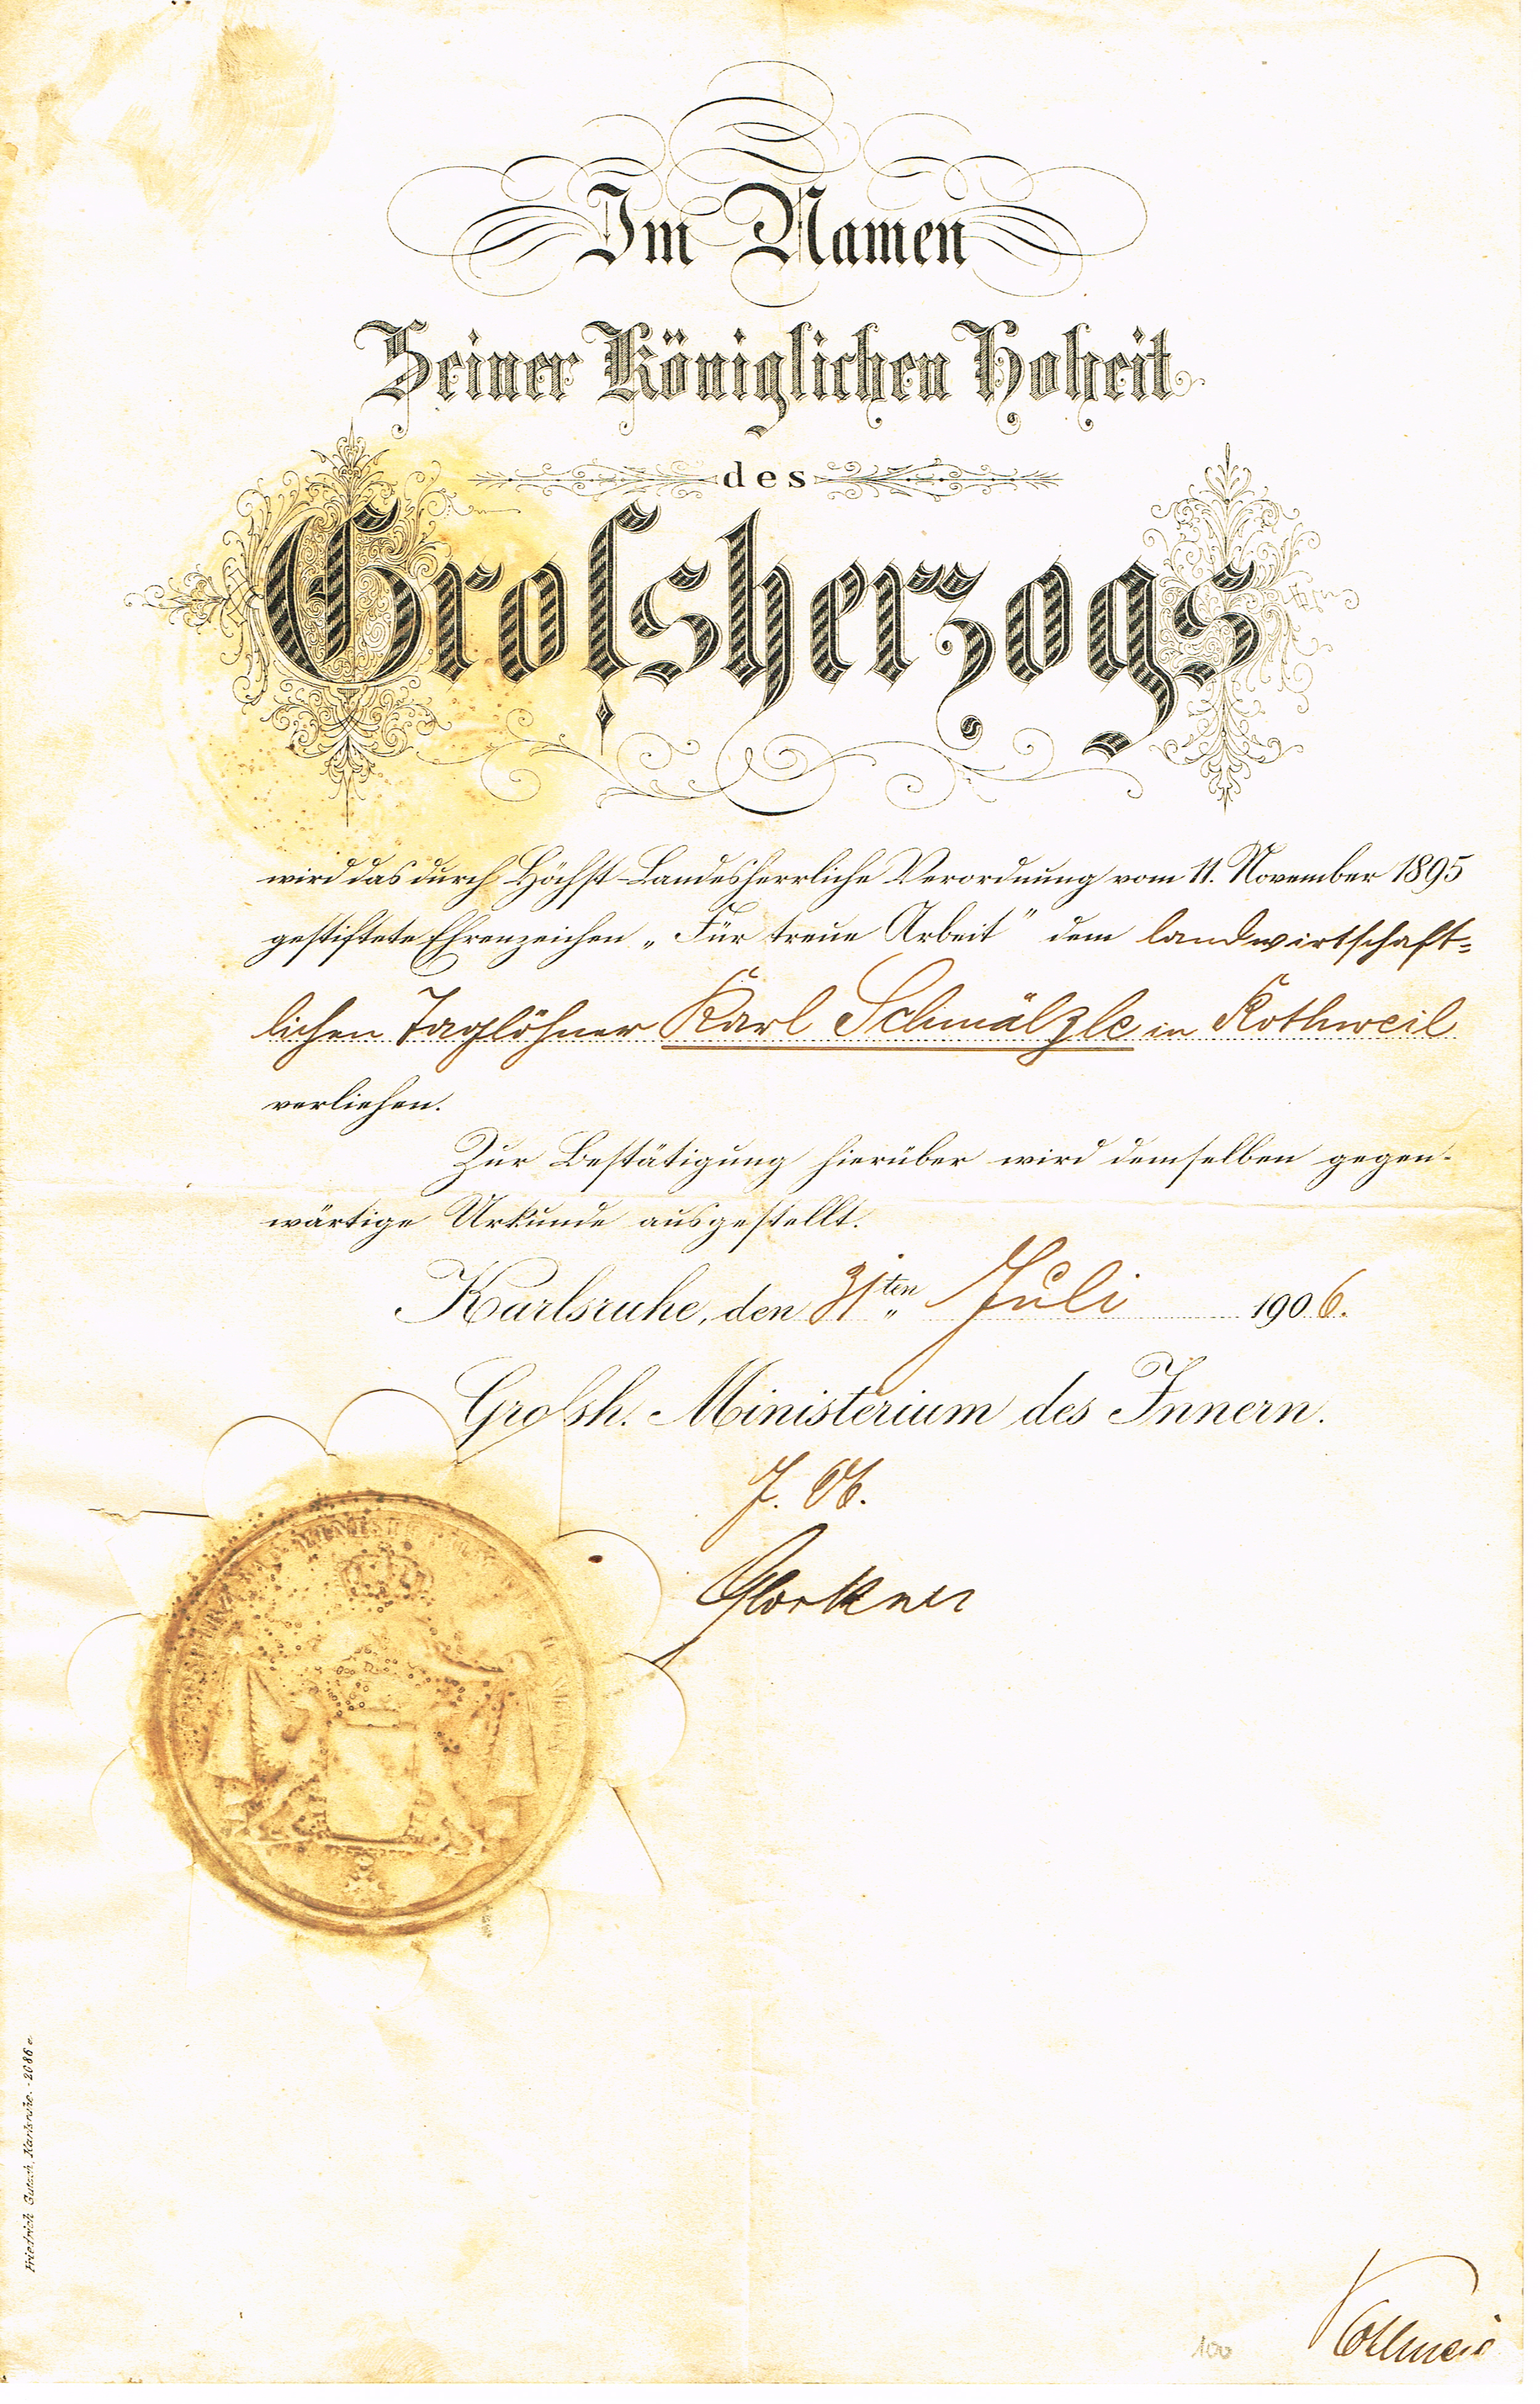 Im Namen
Seiner Königlichen Hoheit
des
Großherzogs
wird das durch Höchst-Landesherrliche Verordnung vom 11. November 1895
gestiftete Ehrenzeichen „Für treue Arbeit" dem landwirtschaft-
lichen Taglöhner Karl Schmälzle in Rothweil
verliehen.
Zur Bestätigung hierüber wird demselben gegen-
wärtige Urkunde ausgestellt.
Karlsruhe, den 31ten Juli 1906.
Großh. Ministerium des Innern.
J. V.
Glockner
Friedrich Gutsch, Karlsruhe. - 2086 e
100